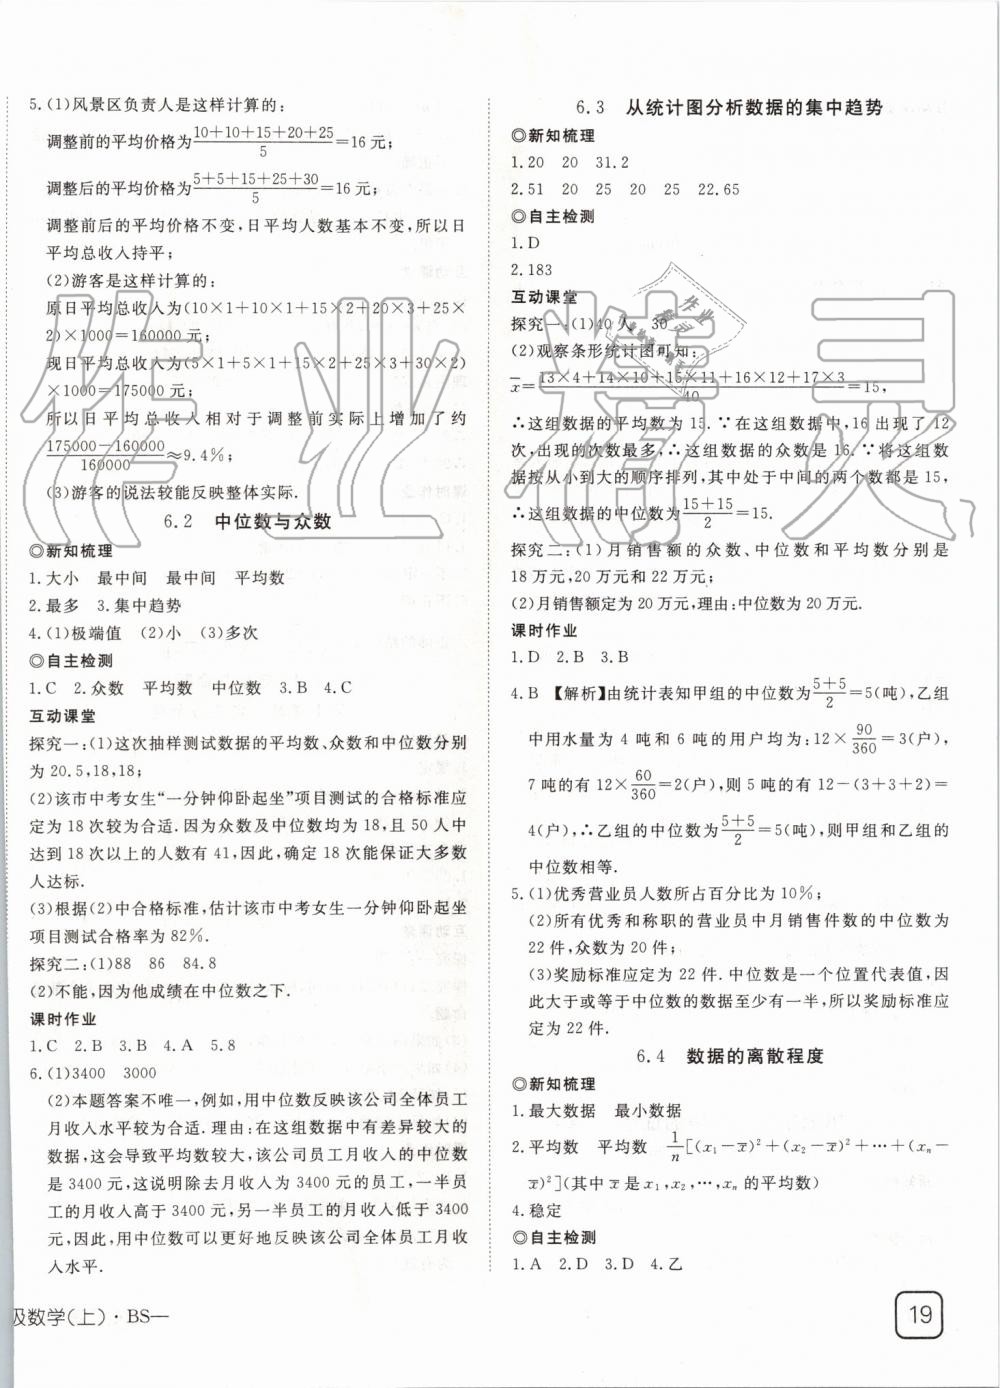 5.(1)风景区负责人是这样计算的:
调整前的平均价格为(10+10+15+20+25)/5=16元;
调整后的平均价格为(5+5+15+25+30)/5=16元;
调整前后的平均价格不变,日平均人数基本不变,所以日
平均总收入持平;
(2)游客是这样计算的:
原日平均总收入为(10×1+10×1+15×2+20×3+25×
2)×1000=160000元;
现日平均总收入为(5×1+5×1+15×2+25×3+30×2)
×1000=175000元;
所以日平均总收入相对于调整前实际上增加了约
(175000-160000)/160000≈9.4%;
(3)游客的说法较能反映整体实际.
6.2 中位数与众数
◎新知梳理
1.大小 最中间 最中间 平均数
2.最多 3.集中趋势
4.(1)极端值 (2)小 (3)多次
◎自主检测
1.C 2.众数 平均数 中位数 3.B 4.C
互动课堂
探究一:(1)这次抽样测试数据的平均数、众数和中位数分别
为20.5,18,18;
(2)该市中考女生“一分钟仰卧起坐”项目测试的合格标准应
定为18次较为合适.因为众数及中位数均为18,且50人中
达到18次以上的人数有41,因此,确定18次能保证大多数
人达标.
(3)根据(2)中合格标准,估计该市中考女生一分钟仰卧起坐
项目测试合格率为82%.
探究二:(1)88 86 84.8
(2)不能,因为他成绩在中位数之下.
课时作业
1.C 2.B 3.B 4.A 5.8
6.(1)3400 3000
(2)本题答案不唯一,例如,用中位数反映该公司全体员工
月收入水平较为合适.理由:在这组数据中有差异较大的
数据,这会导致平均数较大,该公司员工月收入的中位数
是3400元,这说明除去月收入为3400元的员工,一半员
工的月收入高于3400元,另一半员工月收入低于3400
元,因此,用中位数可以更好地反映该公司全体员工月收
入水平.
级数学(上)·BS—
6.3 从统计图分析数据的集中趋势
◎新知梳理
1.20 20 31.2
2.51 20 25 20 25 22.65
◎自主检测
1.D
2.183
互动课堂
探究一:(1)40人 30
(2)观察条形统计图可知:
x̄=(13×4+14×10+15×11+16×12+17×3)/40=15,
∴这组数据的平均数为15.∵在这组数据中,16出现了12
次,出现的次数最多,∴这组数据的众数是16.∵将这组数
据按从小到大的顺序排列,其中处于中间的两个数都是15,
∴这组数据的中位数为(15+15)/2=15.
探究二:(1)月销售额的众数、中位数和平均数分别是
18万元,20万元和22万元;
(2)月销售额定为20万元,理由:中位数为20万元.
课时作业
1.D 2.B 3.B
4.B 【解析】由统计表知甲组的中位数为(5+5)/2=5(吨),乙组
中用水量为4吨和6吨的用户均为:12×90/360=3(户),
7吨的有12×60/360=2(户),则5吨的有12-(3+3+2)=
4(户),∴乙组的中位数为(5+5)/2=5(吨),则甲组和乙组的
中位数相等.
5.(1)优秀营业员人数所占百分比为10%;
(2)所有优秀和称职的营业员中月销售件数的中位数为
22件,众数为20件;
(3)奖励标准应定为22件.中位数是一个位置代表值,因
此大于或等于中位数的数据至少有一半,所以奖励标准应
定为22件.
6.4 数据的离散程度
◎新知梳理
1.最大数据 最小数据
2.平均数 平均数 1/n[(x₁-x̄)²+(x₂-x̄)²+…+(xₙ-
x̄)²](其中x̄是x₁,x₂,…,xₙ的平均数)
4.稳定
◎自主检测
1.A 2.D 3.D 4.乙
19
作业精灵